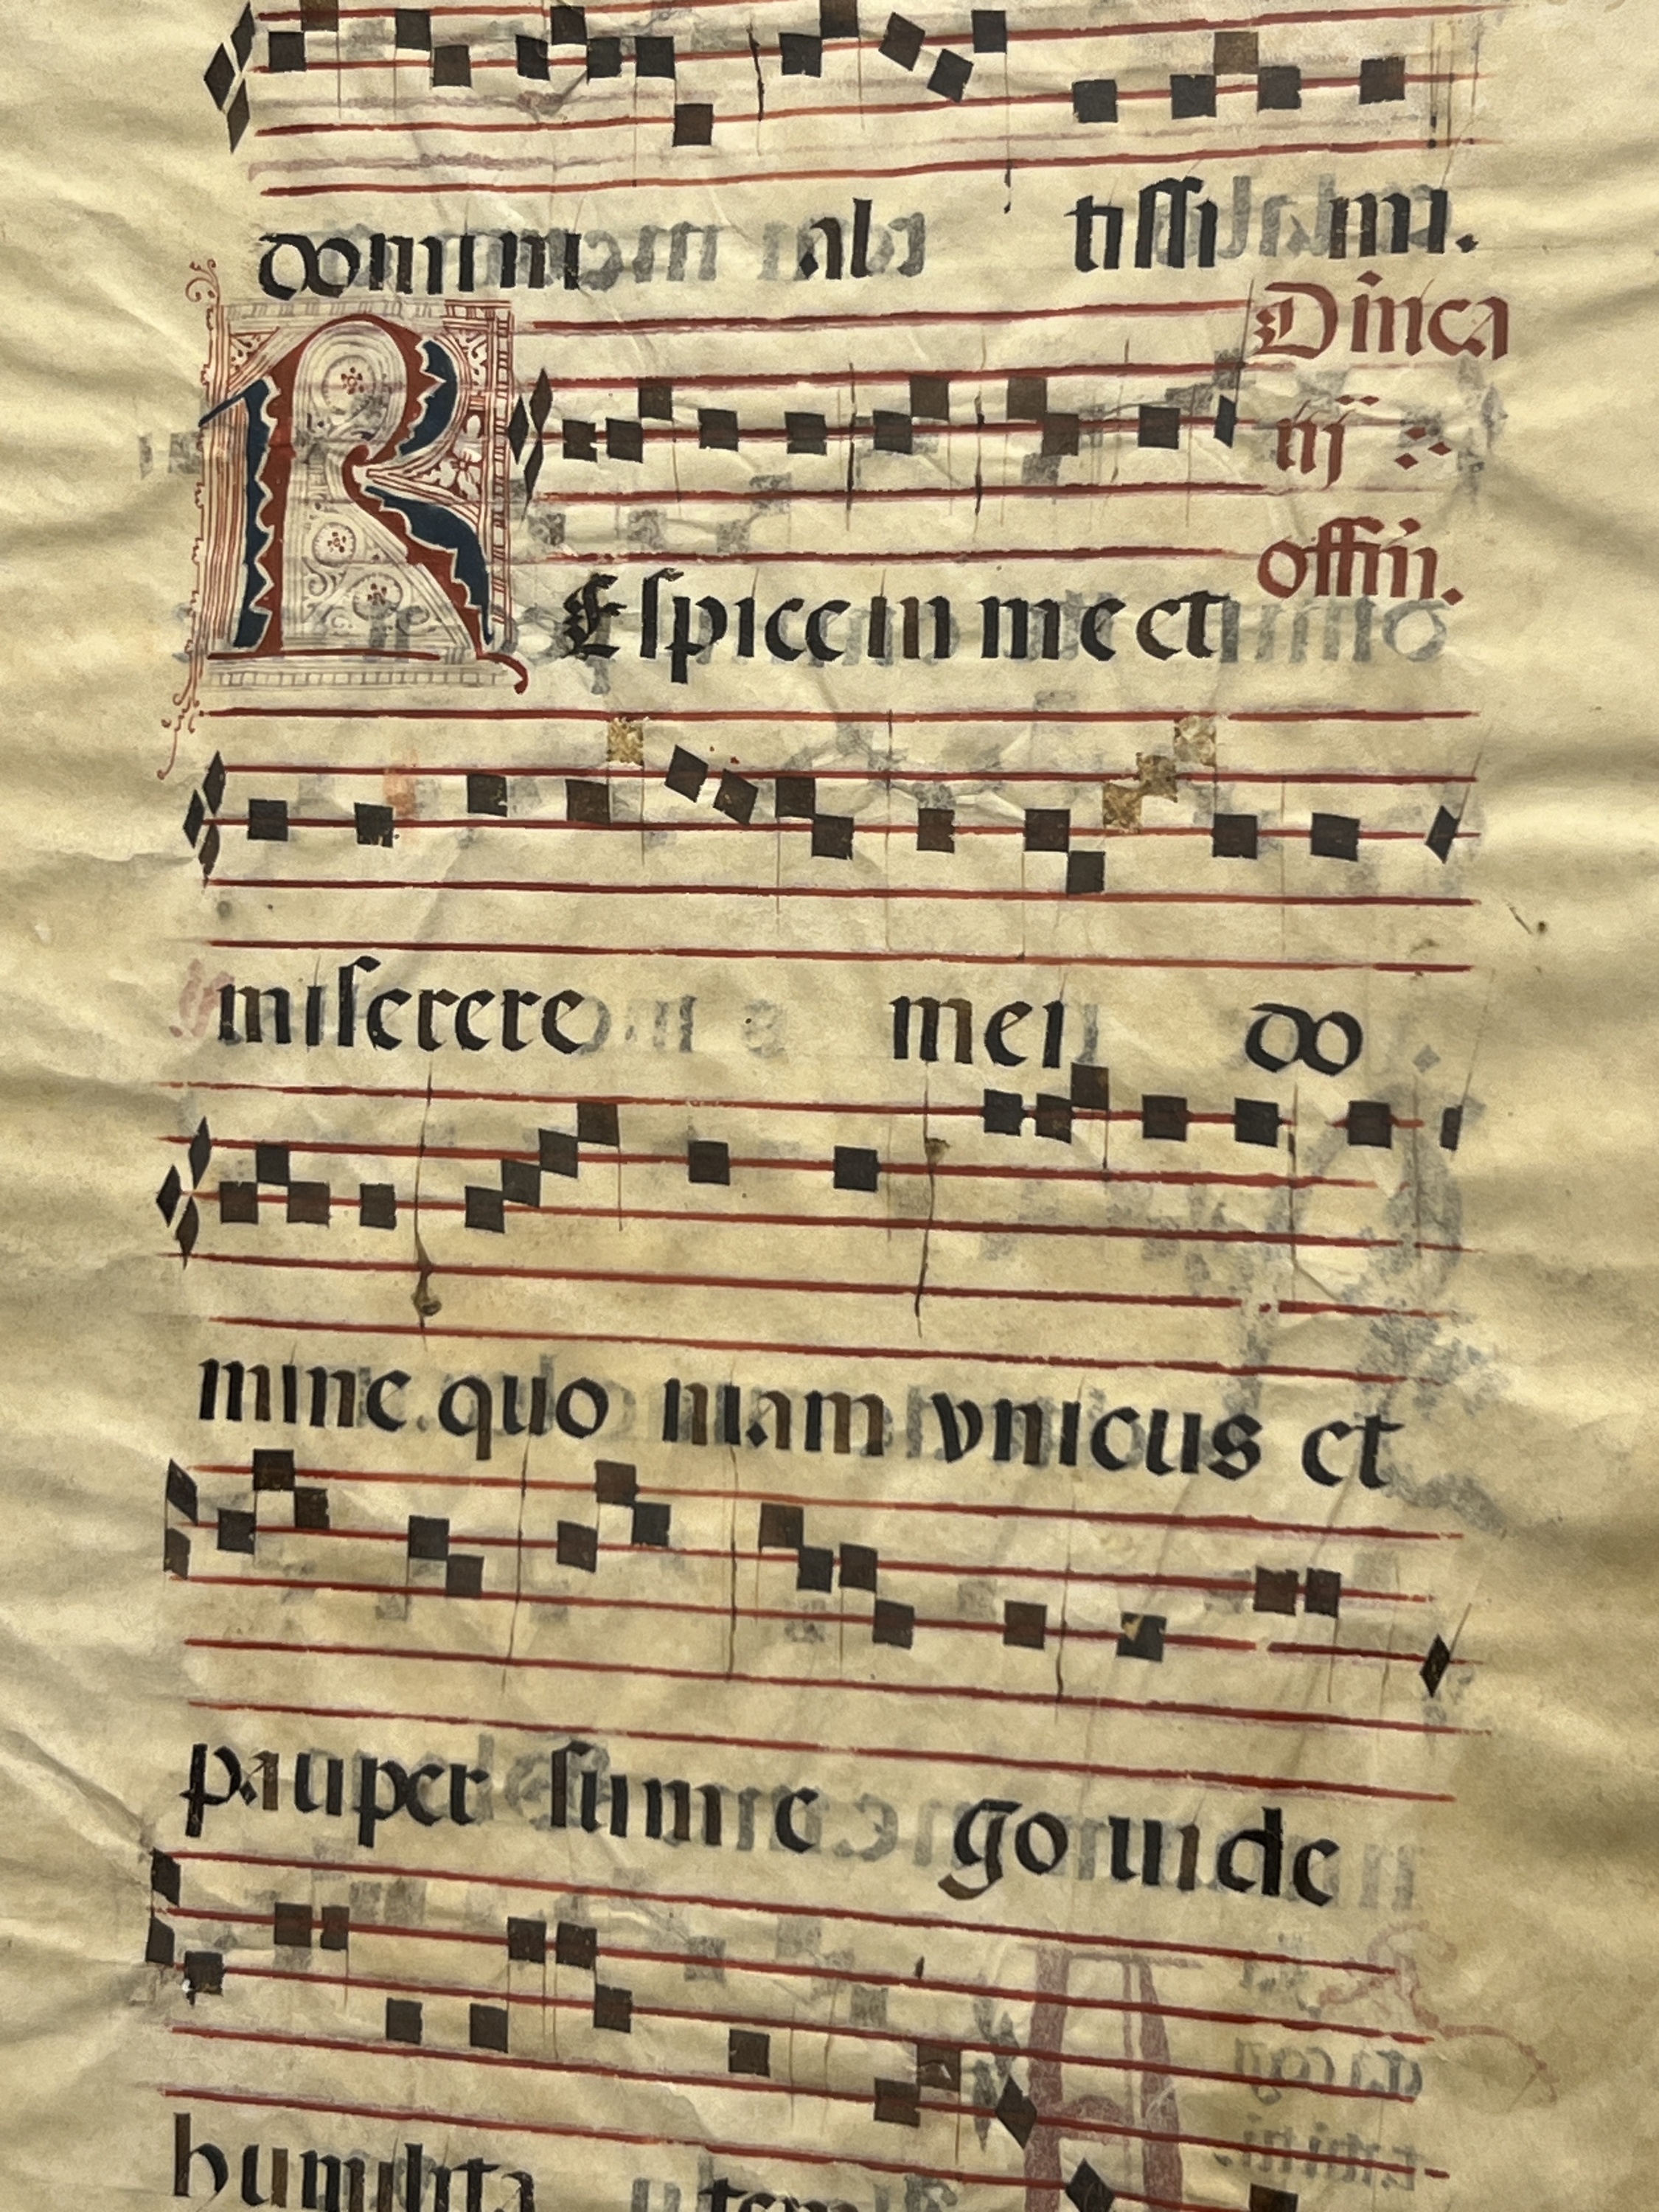 domini al tissimi.
Dn̄ica
iij
offm̄.
REspice in me et
miserere mei do
mine. quo niam vnicus et
pauper sum e go uide
humilita tem